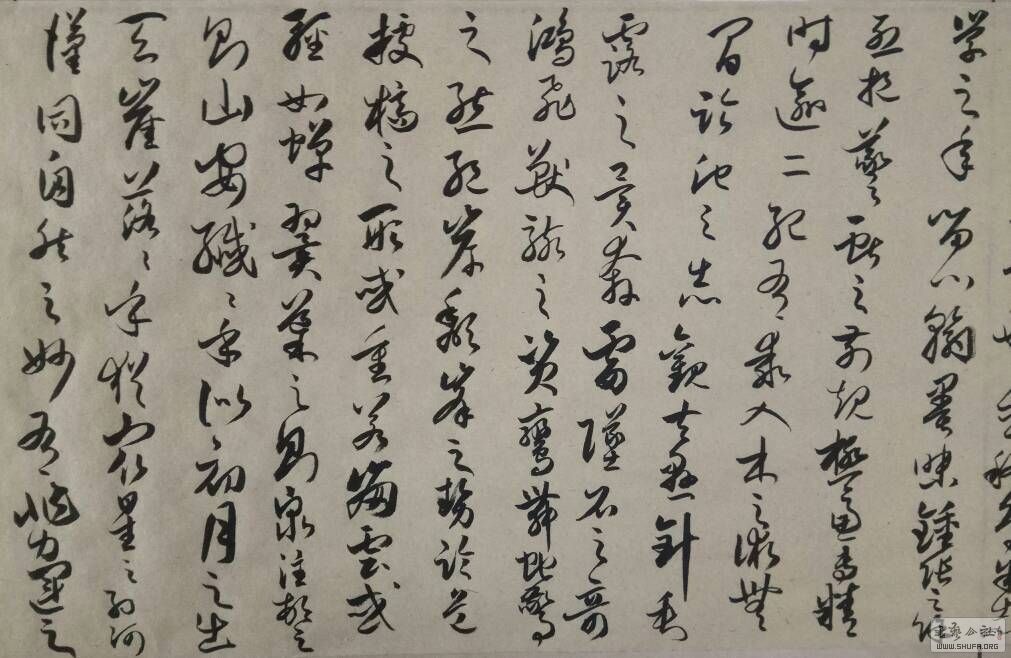 學之年留心翰墨味鍾張之餘
烈挹羲獻之前規極慮專精
時逾二紀有乖入木之術無
間臨池之志觀夫懸針垂
露之異奔雷墜石之奇
鴻飛獸駭之資鸞舞蛇驚
之態絕岸頹峯之勢臨危
據槁之形或重若崩雲或
輕如蟬翼導之則泉注頓之
則山安纖纖乎似初月之出
天崖落落乎猶衆星之列河
漢同自然之妙有非力運之
WWW.SHUFA.ORG